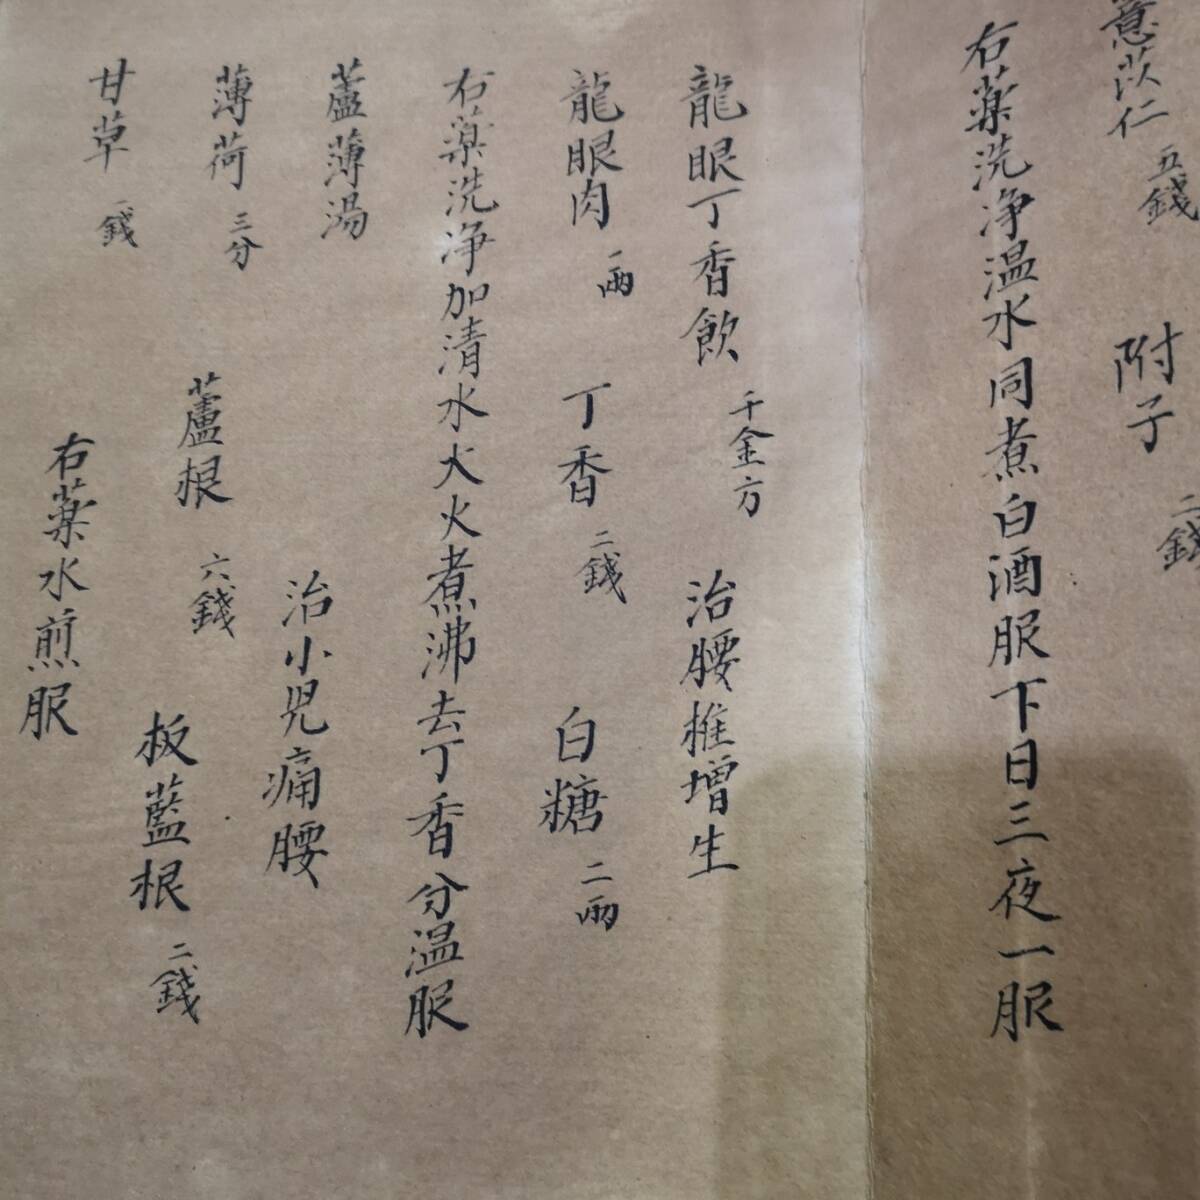 薏苡仁 五錢 附子 二錢
右藥洗净温水同煮白酒服下日三夜一服
龍眼丁香飲 千金方 治腰椎增生
龍眼肉 一兩 丁香 二錢 白糖 二兩
右藥洗净加清水大火煮沸去丁香分温服
蘆薄湯 治小児痛腰
薄荷 三分 蘆根 六錢 板藍根 二錢
甘草 一錢 右藥水煎服